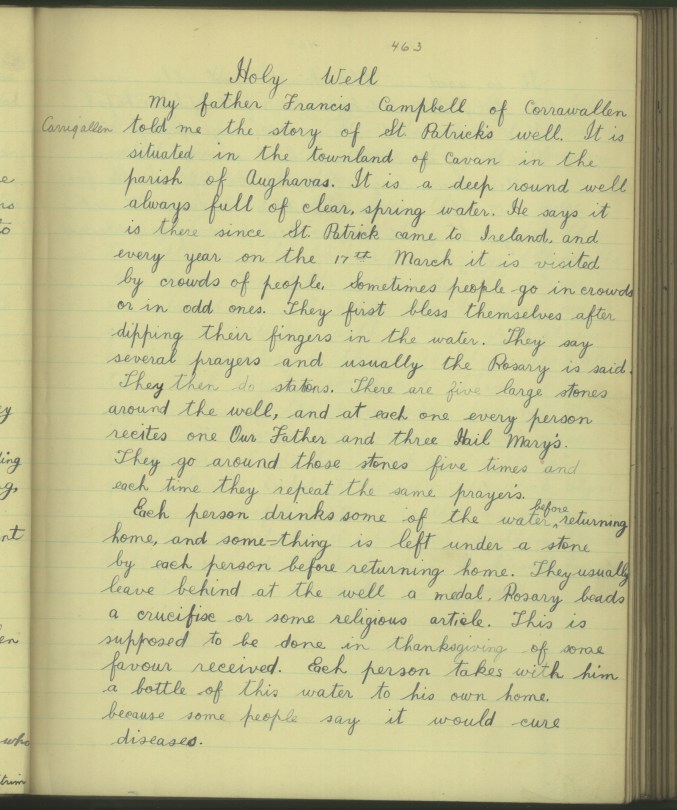 463
Holy Well
My father Francis Campbell of Corrawallen
Carrigallen told me the story of St. Patrick's well. It is
situated in the townland of Cavan in the
parish of Aughavas. It is a deep round well
always full of clear, spring water. He says it
is there since St. Patrick came to Ireland, and
every year on the 17th March it is visited
by crowds of people. Sometimes people go in crowds
or in odd ones. They first bless themselves after
dipping their fingers in the water. They say
several prayers and usually the Rosary is said.
They then do stations. There are five large stones
around the well, and at each one every person
recites one Our Father and three Hail Mary's.
They go around those stones five times and
each time they repeat the same prayers.
Each person drinks some of the water before returning
home, and some-thing is left under a stone
by each person before returning home. They usually
leave behind at the well a medal, Rosary beads
a crucifix or some religious article. This is
supposed to be done in thanksgiving of some
favour received. Each person takes with him
a bottle of this water to his own home.
because some people say it would cure
diseases.